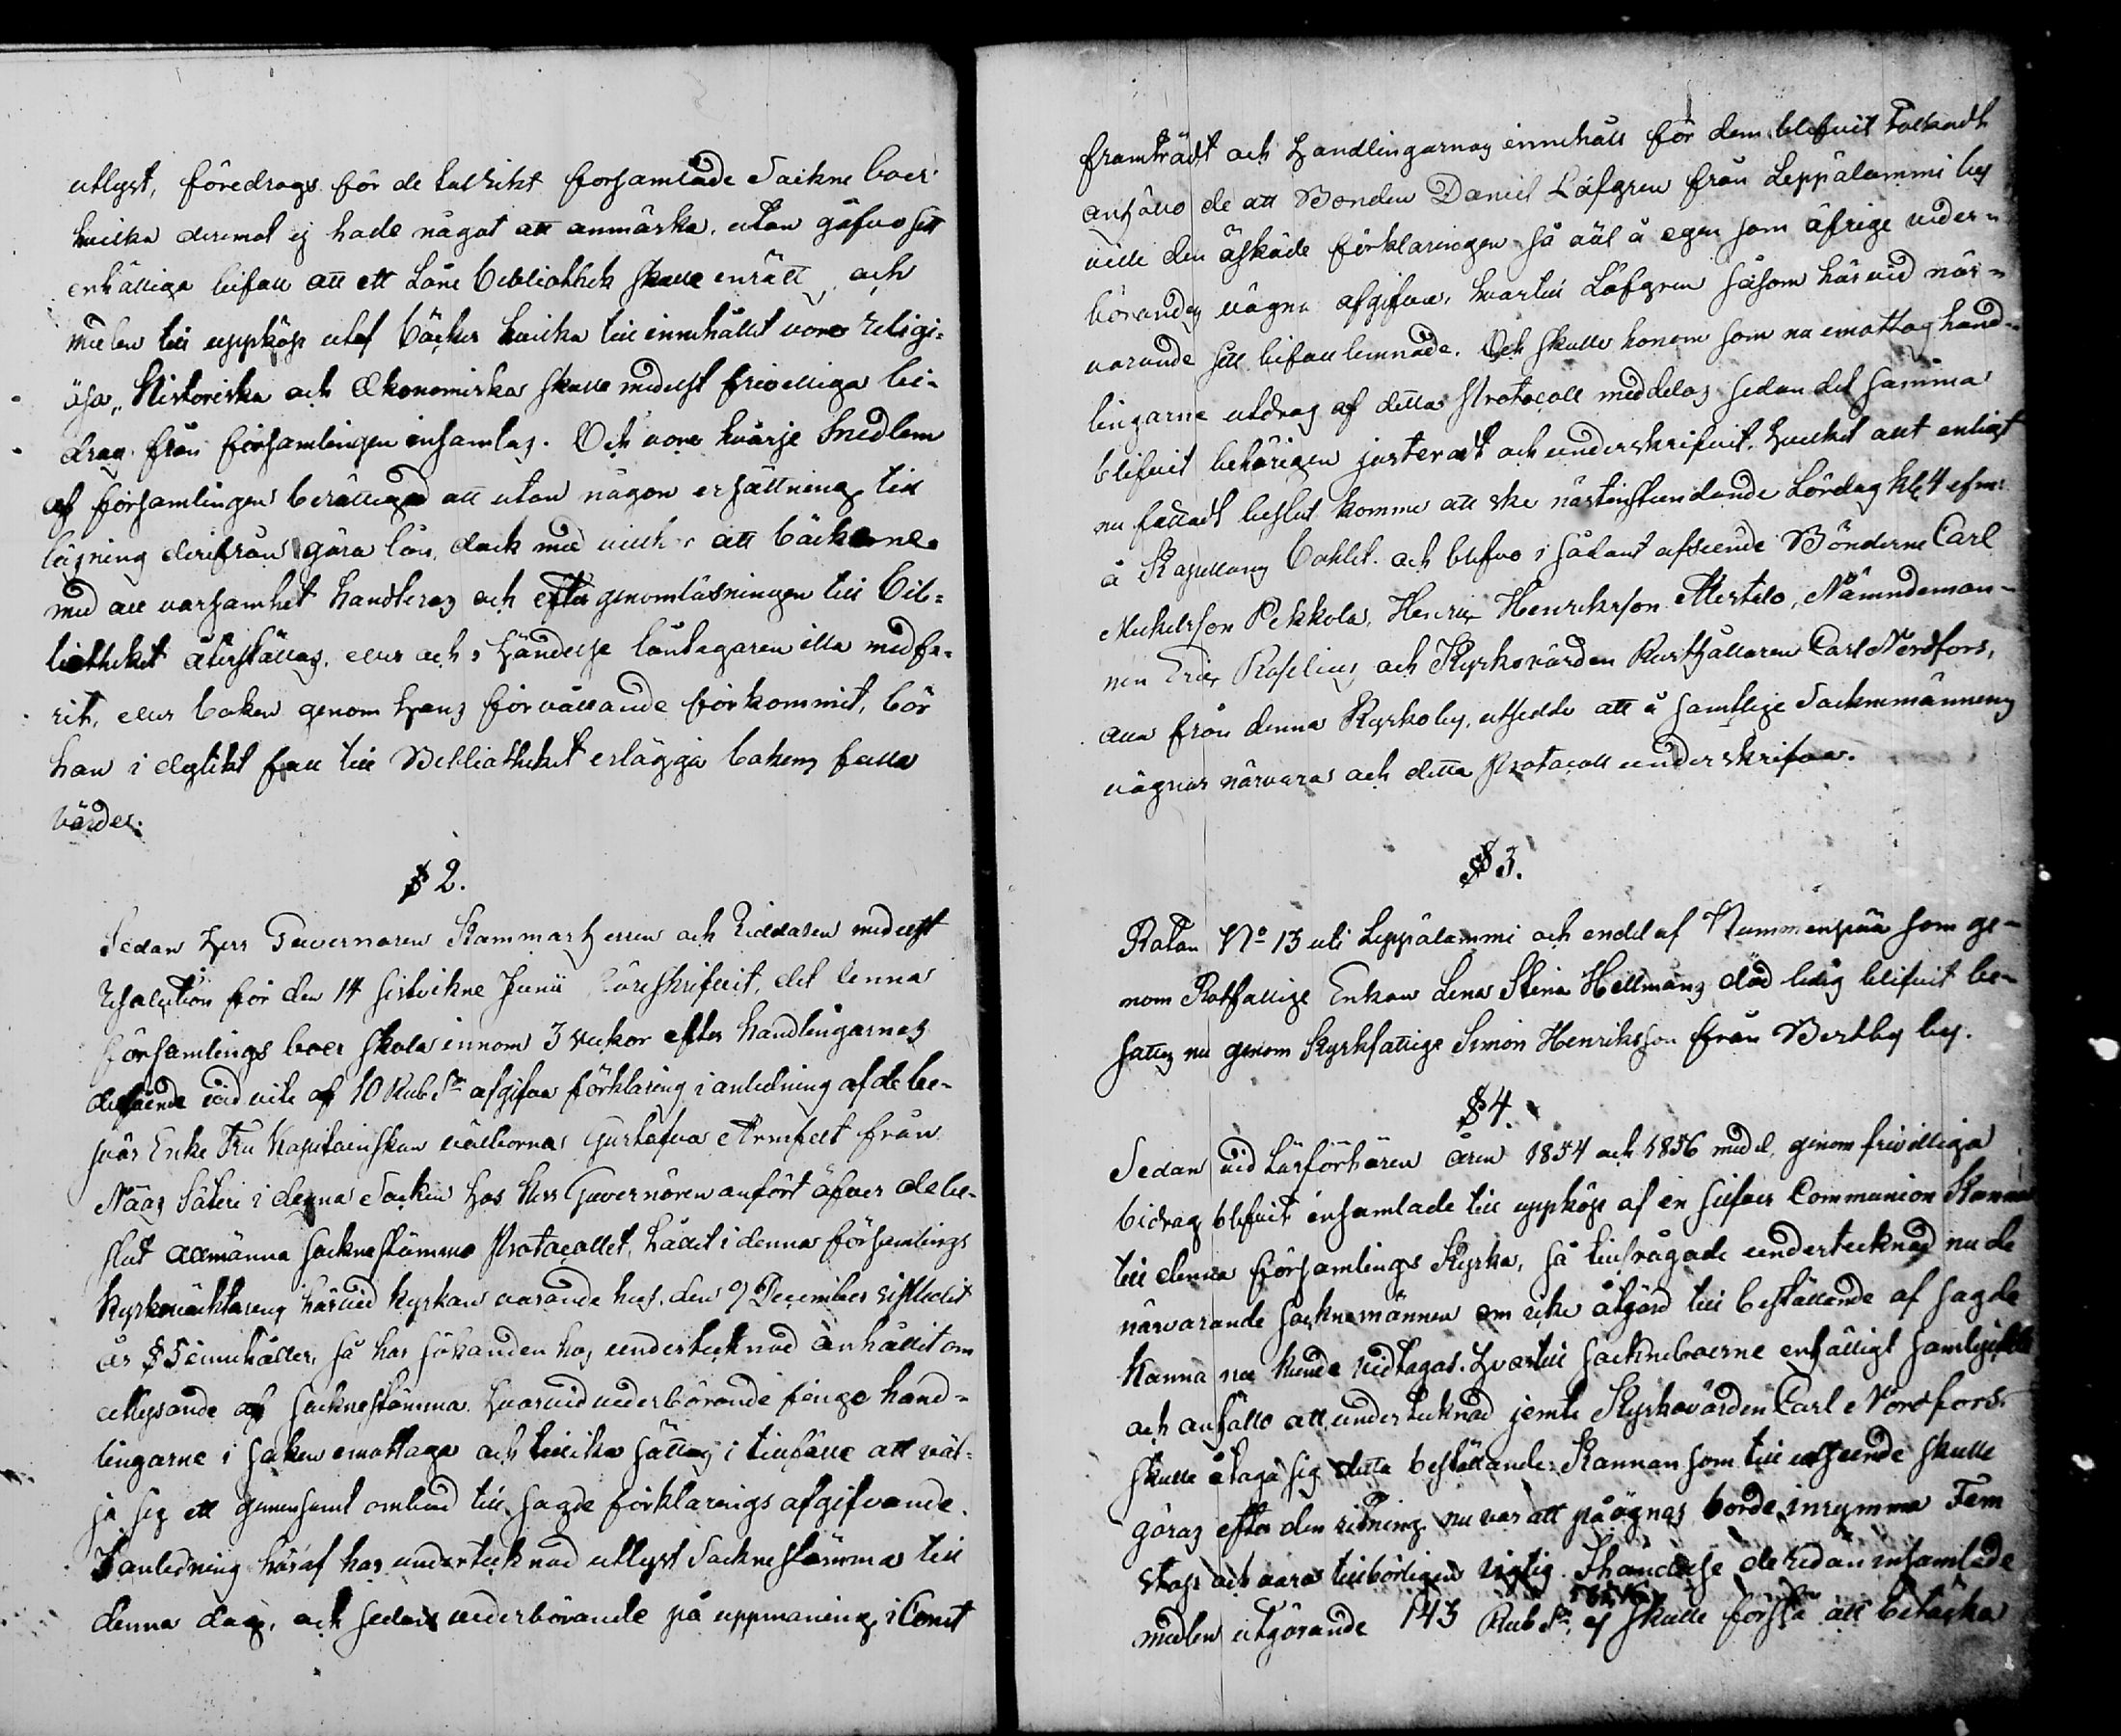 utlyst, föredrogs för de talrikt församlade Sockne boer
hvilka deremot ej hade något att anmärka, utan gåfvo sitt
enhälliga bifall att ett Låne Bibliothek skulle inrätt och
medlen till uppköp utaf böcker hvilka till innehållet vore religi-
ösa, Historiska och Ekonomiska skulle medelst frivilliga bi-
drag från församlingen insamlas. Och vore hvarje medlem
af församlingen berättigad att utan någon ersättning till
lägning derifrån göra lån, dock med vilkor att böckerne
med all varsamhet handteras och efter genomläsningen till Bib-
liotheket återställas, eller och i händelse låntagaren illa medfa-
rit, eller boken genom hans förvållande förkommit, bör
han i dylikt fall till Bibliotheket erlägga bokens fulla
värde.
§ 2.
Sedan Herr Guvernören Kammarherren och Riddaren medelst
Resolution för den 14 sistvikne Junii föreskrifvit, det denna
församlings boer skola innom 3 veckor efter handlingarnes
delfående vid vite af 10 Rub Sr afgifva förklaring i anledning af de be-
svär Enke Fru Kapitainskan välborna Gustafva Armfelt från
Näås Säteri i denna Socken hos Herr Guvernören anfört öfver de be-
slut allmänna sockne stämmo Protocollet, hållit i denna församlings
kyrkoväktarens härvid kyrkan varande hus, den 9 December sistledit
år § 5 innehåller, så har sökanden hos undertecknad anhållit om
utlysande af socknestämma hvarvid vederbörande finge hand-
lingarne i saken emottaga och tillika sättas i tillfälle att väl-
ja sig ett gemensamt ombud till sagde förklarings afgifvande.
I anledning häraf har undertecknad utlyst Sockne stämma till
denna dag, och sedan vederbörande på uppmaning i Conct
framträdt och Handlingarnas innehåll för dem blifvit Tolkadt
anhöllo de att Bonden Daniel Löfgren från Leppälammi by
ville den äskade förklaringen så väl å egen som öfrige veder-
börandes vägna afgifva, hvartill Löfgren såsom härvid när-
varande sitt bifall lemnade. Och skulle honom som nu emottog hand-
lingarne utdrag af detta Protocoll meddelas sedan det samma
blifvit behörigen justeradt och underskrifvit, hvilket allt enligt
nu fattadt beslut komme att ske nästinstundande Lördag Kl 4 efm:
å Kapellans Bohlet. och blefvo i sådant afseende Bönderne Carl
Mickelsson Pekkola, Henric Henriksson Mertelo, Nämndeman-
nen Eric Roselius och Kyrkovärden Rusthållaren Carl Nordfors,
alla från denna Kyrkoby, utsedde att å samtlige Sockenmännens
vägnar närvara och detta Protocoll underskrifva.
§ 3.
Rotan No 13 uti Leppälammi och endel af Nummenpää som ge-
nom Rotfattige Enkan Lena Stina Hellmans död ledig blifvit be-
sattes nu genom Kyrkfattige Simon Henriksson från Bertby by.
§ 4.
Sedan vid Läsförhören åren 1854 och 1856 medel, genom frivilliga
bidrag blifvit insamlade till uppköp af en silfver Communion Kanna
till denna församlings Kyrka, så tillfrågade undertecknad nu de
närvarande socknemännen om icke åtgärd till beställande af sagde
Kanna nu kunde vidtagas. Hvartill sockneboerne enhälligt samtyckte
och anhöllo att undertecknad jemte Kyrkovärden Carl Nordfors
skulle åtaga sig detta beställande. Kannan som till utseende skulle
göras efter den ritning nu var att påögnas borde inrymma Fem
stop och vara tillbörligen vigtig. I händelse de redan insamlade
medlen utgörande 143 Rub Sr ej skulle förslå att betäcka